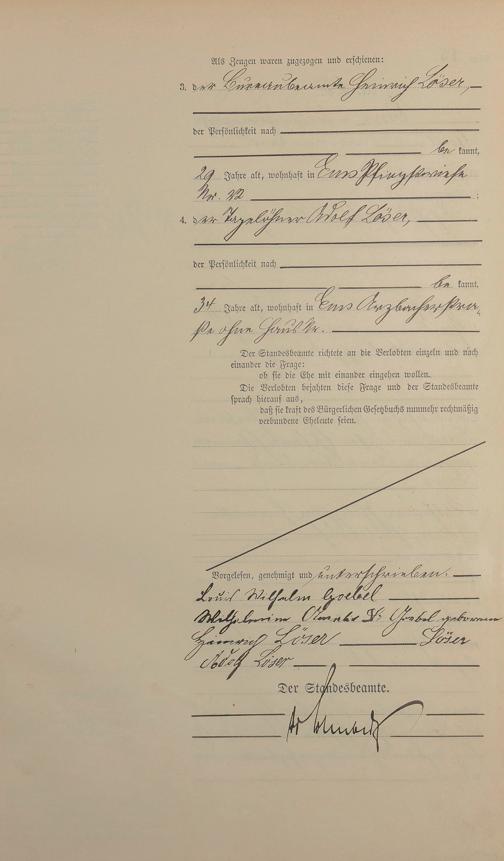 Als Zeugen waren zugezogen und erschienen:
3. der Bureaubeamte Heinrich Löser,
der Persönlichkeit nach
be kannt,
29 Jahre alt, wohnhaft in Ems Pfingstwiese
Nr. 22 ;
4. der Tagelöhner Adolf Löser,
der Persönlichkeit nach
be kannt,
34 Jahre alt, wohnhaft in Ems Arzbacherstra-
ße ohne Haus Nr.
Der Standesbeamte richtete an die Verlobten einzeln und nach
einander die Frage:
ob sie die Ehe mit einander eingehen wollen.
Die Verlobten bejahten diese Frage und der Standesbeamte
sprach hierauf aus,
daß sie kraft des Bürgerlichen Gesetzbuchs nunmehr rechtmäßig
verbundene Eheleute seien.
Vorgelesen, genehmigt und unterschrieben.
Louis Wilhelm Goebel
Wilhelmine Goebel geborenen
Heinrich Löser Löser
Adolf Löser
Der Standesbeamte.